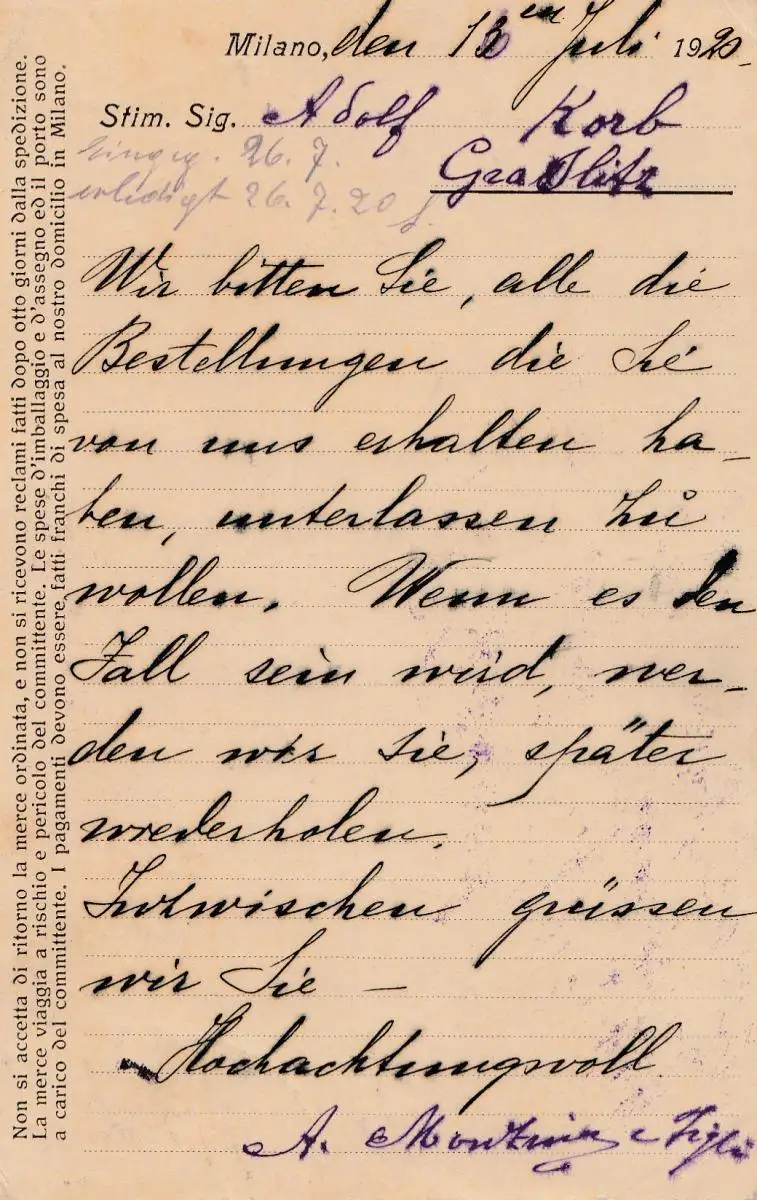 Milano, den 13ten Juli 1920
Stim. Sig. Adolf Korb
Graslitz
eingeg. 26. 7.
erledigt 26. 7. 20
Wir bitten Sie, alle die
Bestellungen die Sie
von uns erhalten ha-
ben, unterlassen zu
wollen. Wenn es den
Fall sein wird, wer-
den wir Sie, später
wiederholen.
Intwischen grüssen
wir Sie —
Hochachtungsvoll
A. e Figli
Non si accetta di ritorno la merce ordinata, e non si ricevono reclami fatti dopo otto giorni dalla spedizione.
La merce viaggia a rischio e pericolo del committente. Le spese d'imballaggio e d'assegno ed il porto sono
a carico del committente. I pagamenti devono essere fatti franchi di spesa al nostro domicilio in Milano.